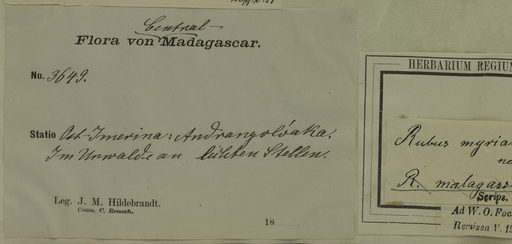 Central
Flora von Madagascar.
No. 3649.
Statio Ost-Imerina: Andrangolóaka.
Im Urwalde an lichten Stellen.
Leg. J. M. Hildebrandt.
Comm. C. Rensch.
18
HERBARIUM REGIUM
Rubus myria
R. malagass
Scrips.
Ad W. O. Foc
Remissa V. 13